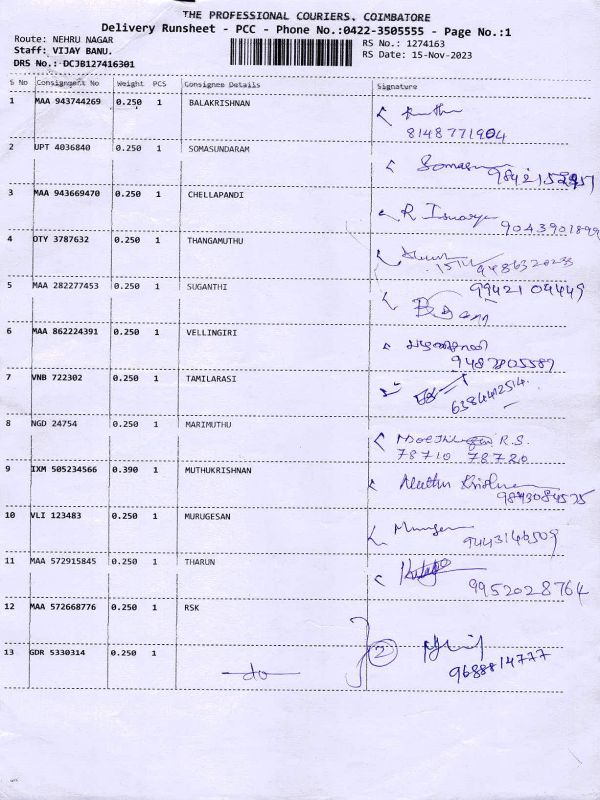 THE PROFESSIONAL COURIERS, COIMBATORE
Delivery Runsheet - PCC - Phone No.:0422-3505555 - Page No.:1
Route: NEHRU NAGAR
Staff: VIJAY BANU.
DRS No.: DCJB127416301
RS No.: 1274163
RS Date: 15-Nov-2023
S No Consignment No Weight PCS Consignee Details Signature
1 MAA 943744269 0.250 1 BALAKRISHNAN
8148771904
2 UPT 4036840 0.250 1 SOMASUNDARAM
3 MAA 943669470 0.250 1 CHELLAPANDI
9043901899
4 OTY 3787632 0.250 1 THANGAMUTHU
9486320233
5 MAA 282277453 0.250 1 SUGANTHI
99421 04449
6 MAA 862224391 0.250 1 VELLINGIRI
9487805589
7 VNB 722302 0.250 1 TAMILARASI
6384412514.
8 NGD 24754 0.250 1 MARIMUTHU
R.S.
78710 78720
9 IXM 505234566 0.390 1 MUTHUKRISHNAN
Muthu Krishnan
9843084575
10 VLI 123483 0.250 1 MURUGESAN
9443146509
11 MAA 572915845 0.250 1 THARUN
9952028764
12 MAA 572668776 0.250 1 RSK
13 GDR 5330314 0.250 1 do 2
9688814777